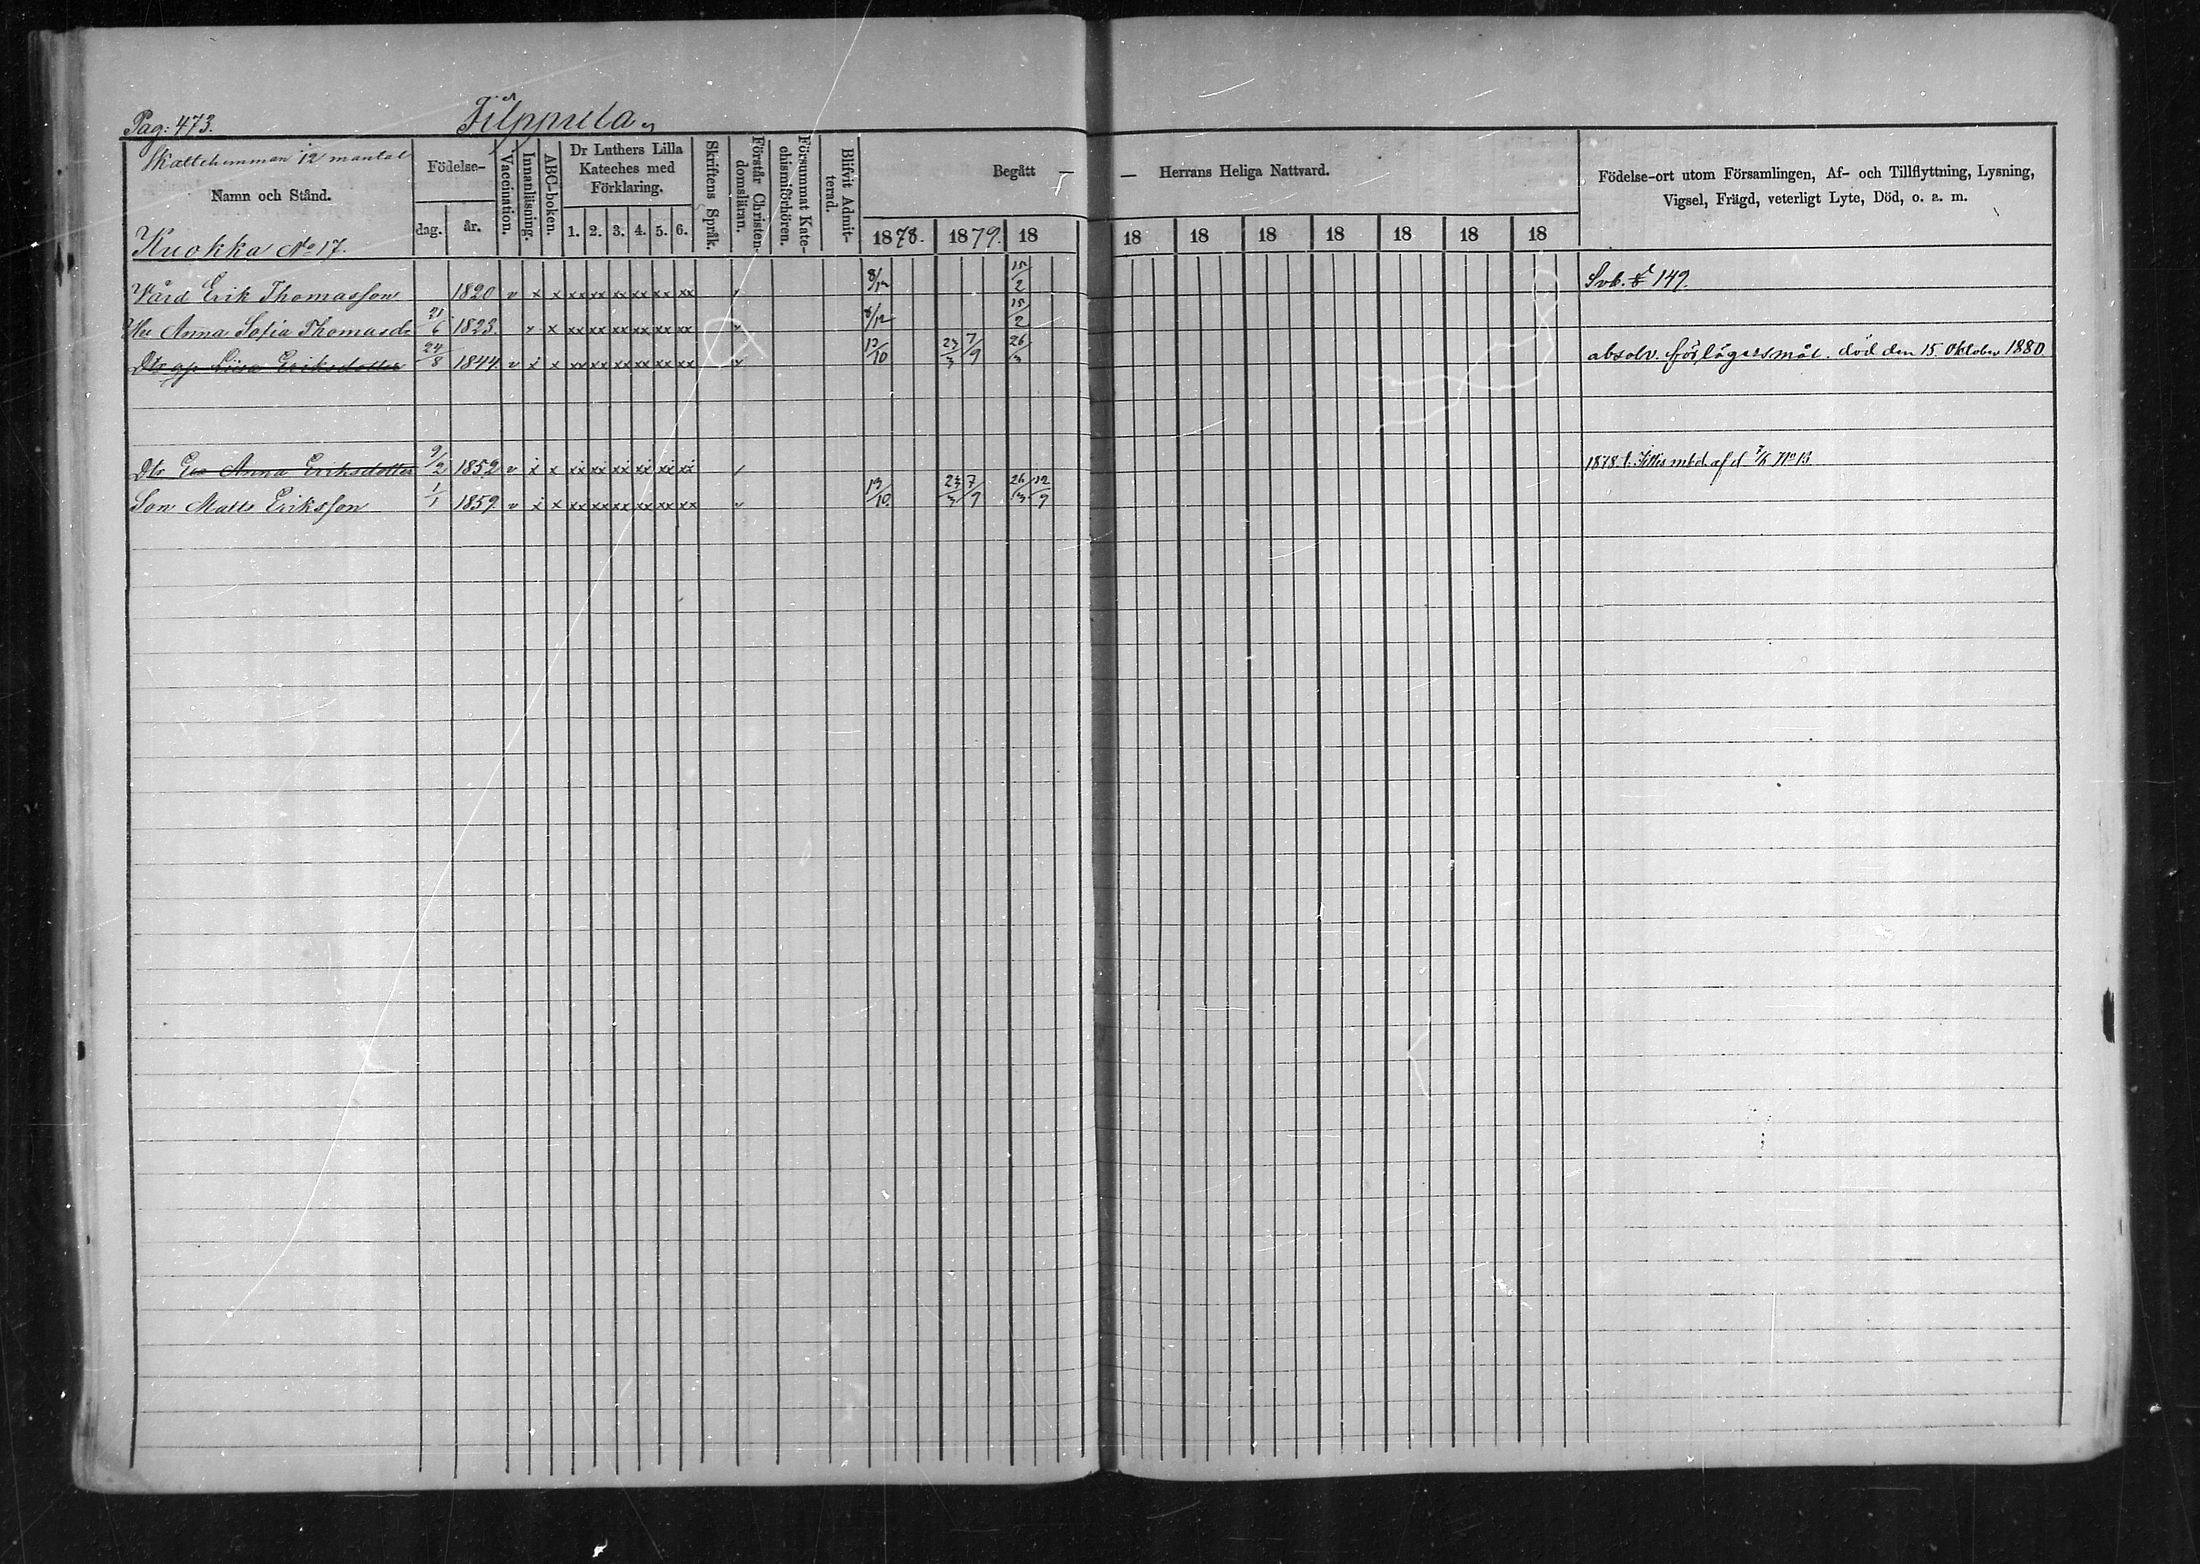 Pag: 473. Filppula
Skattehemman 12 mantal
Namn och Stånd.
Kuokka No 17.
Födelse-
dag. år.
Vaccination.
Innanläsning.
ABC-boken.
Dr Luthers Lilla
Kateches med
Förklaring.
1. 2. 3. 4. 5. 6.
Skriftens Språk.
Förstår Christen-
domsläran.
Försummat Kate-
chismiförhören.
Blifvit Admit-
terad.
Begått — — Herrans Heliga Nattvard.
1878. 1879. 18 18 18 18 18 18 18 18
Födelse-ort utom Församlingen, Af- och Tillflyttning, Lysning,
Vigsel, Frägd, veterligt Lyte, Död, o. a. m.
Vård Erik Thomasson 1820 v x x xx xx xx xx xx xx v 8/12 15/2 149.
Anna Sofia Thomasdr 21/6 1823 v x xx xx xx xx xx xx v 8/12 15/2
Dtr Liisa Eriksdotter 24/8 1844 v x x xx xx xx xx xx xx v 13/10 23/3 7/9 26/3 absolv. för lägersmål. död den 15 Oktober 1880
Dtr Anna Eriksdotter 9/2 1852 v x x xx xx xx xx xx xx 1878 t. Kides 7/6 No 13
Son Matts Eriksson 1/1 1859 v x x xx xx xx xx xx xx v 13/10 23/3 7/9 26/3 12/9